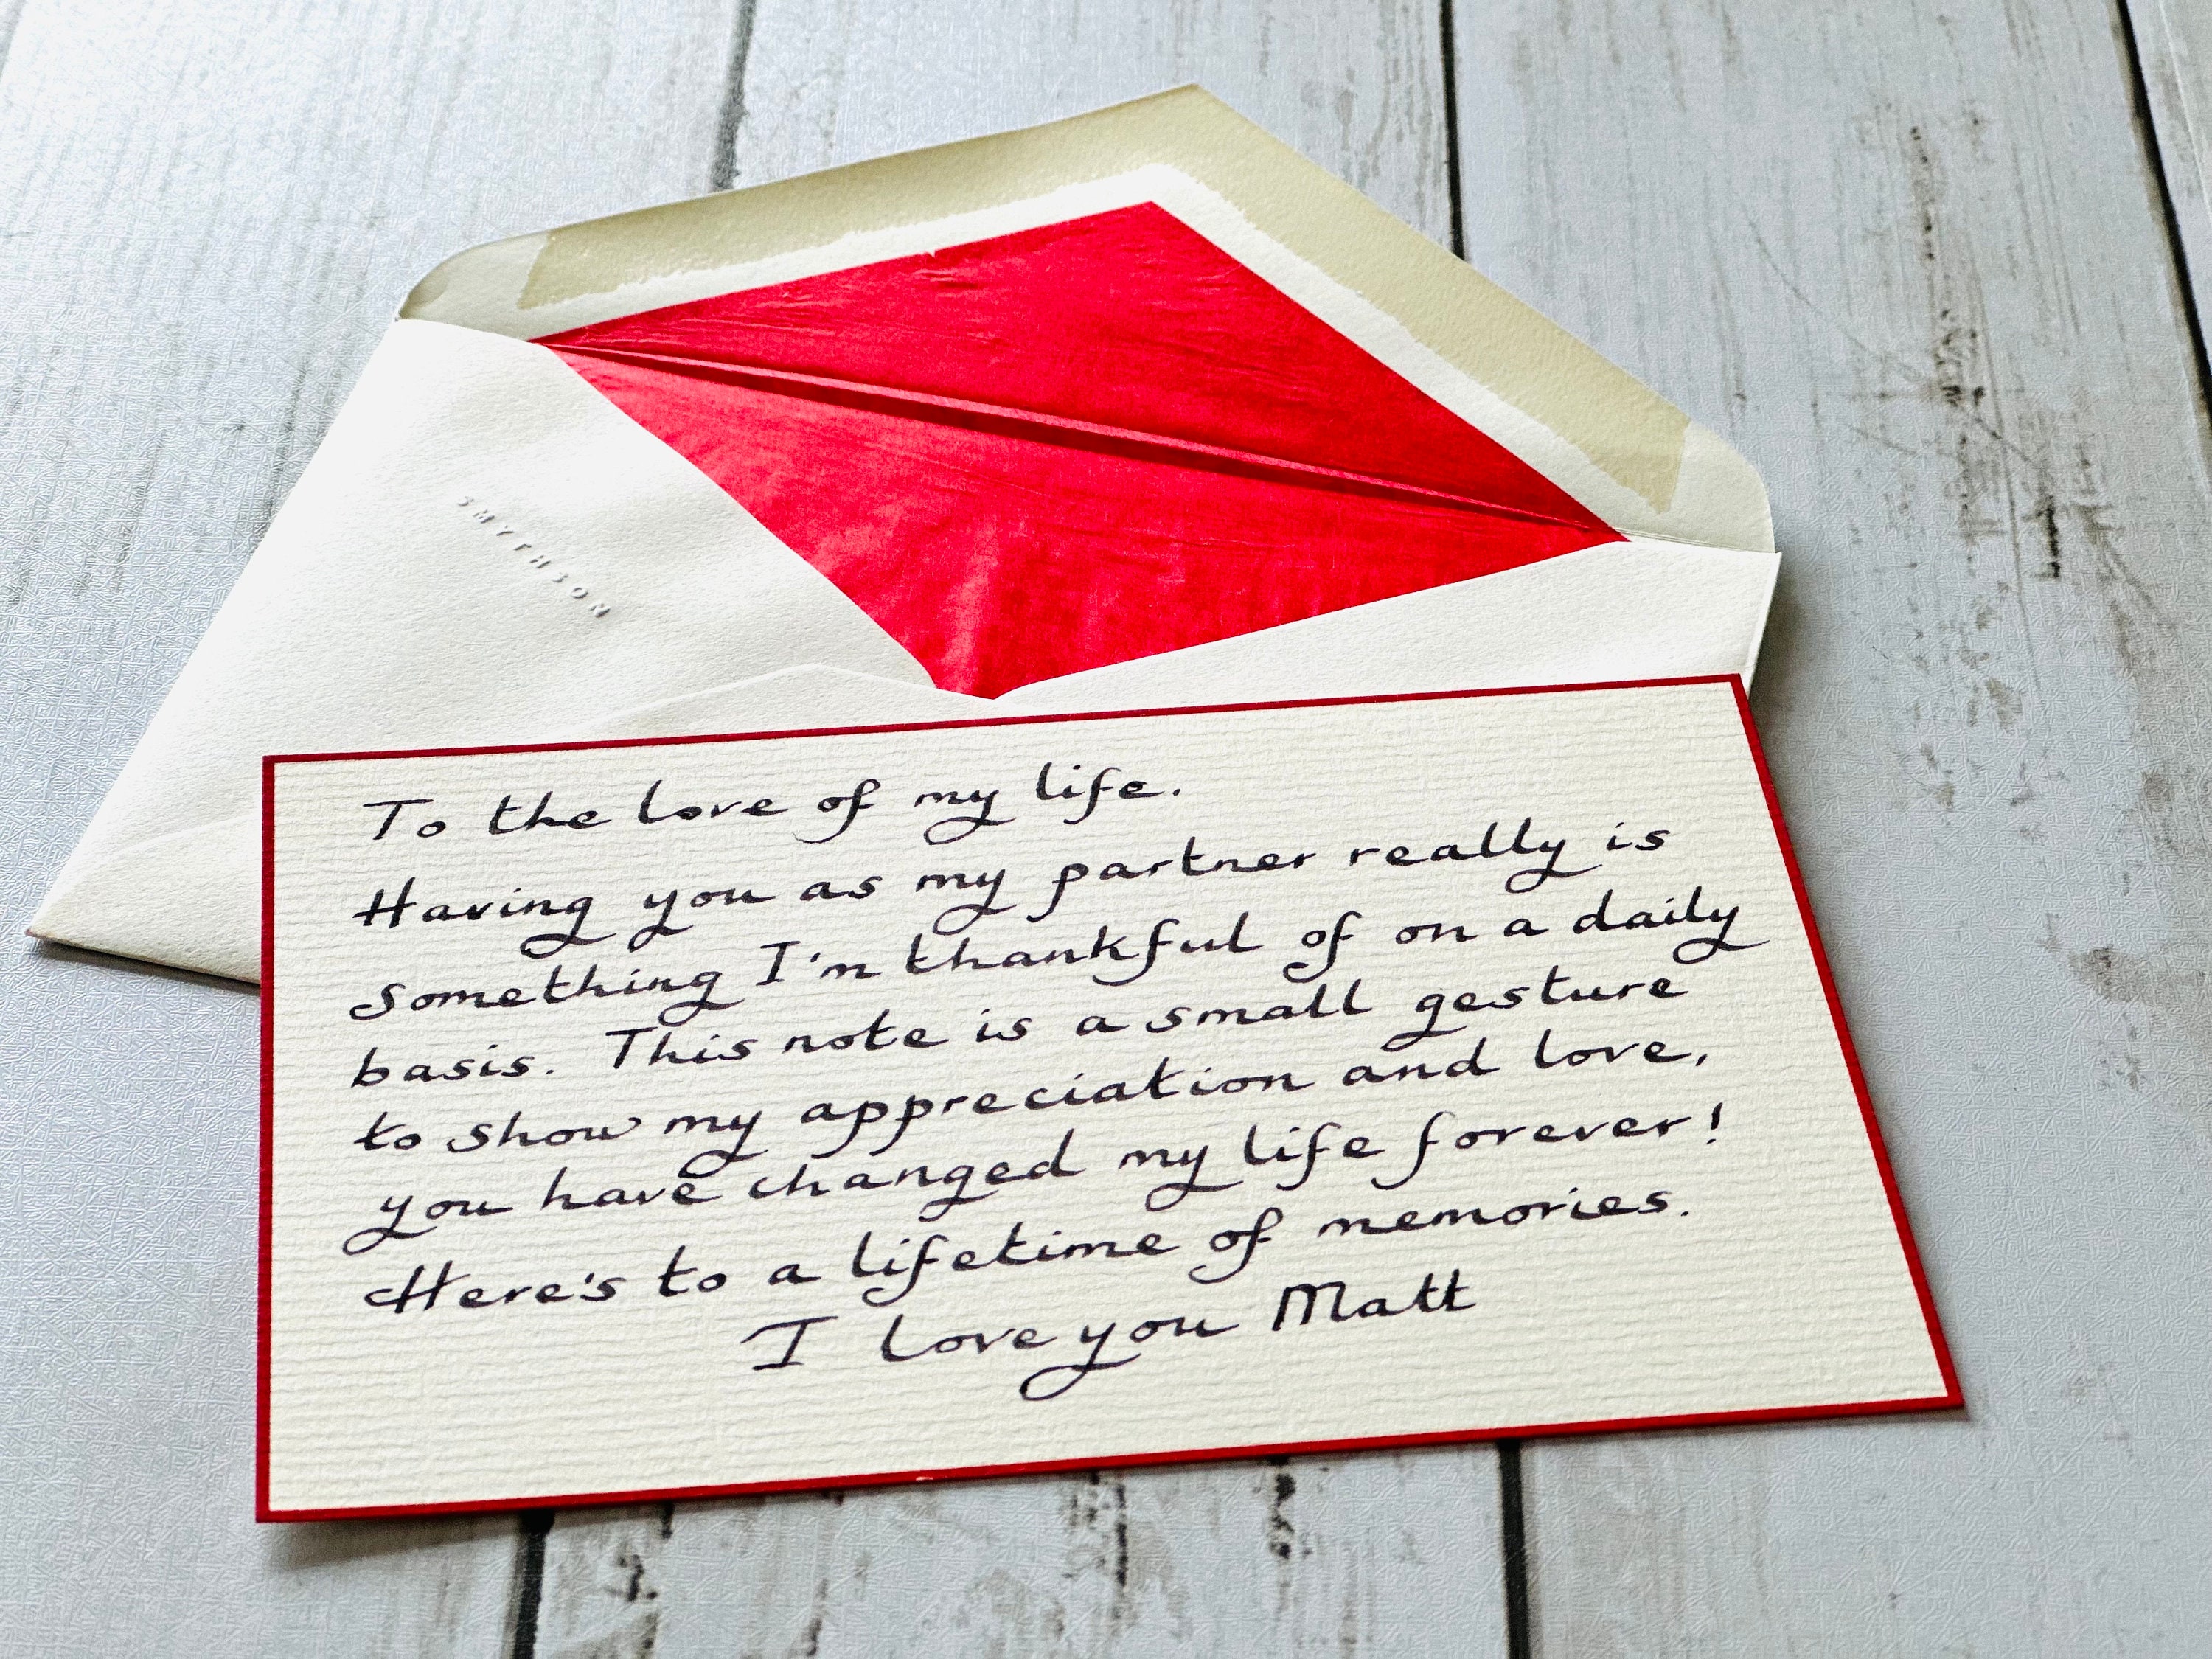 SMYTHSON
To the love of my life.
Having you as my partner really is
something I'm thankful of on a daily
basis. This note is a small gesture
to show my appreciation and love,
you have changed my life forever!
Here's to a lifetime of memories.
I love you Matt